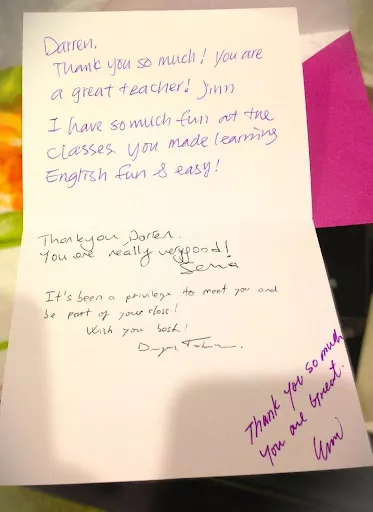 Darren,
Thank you so much! You are
a great teacher! Jinn
I have so much fun at the
classes. You made learning
English fun & easy!
Thank you, Darren.
You are really very good!
It's been a privilege to meet you and
be part of your class!
Wish you best!
Thank you so much
You are great.